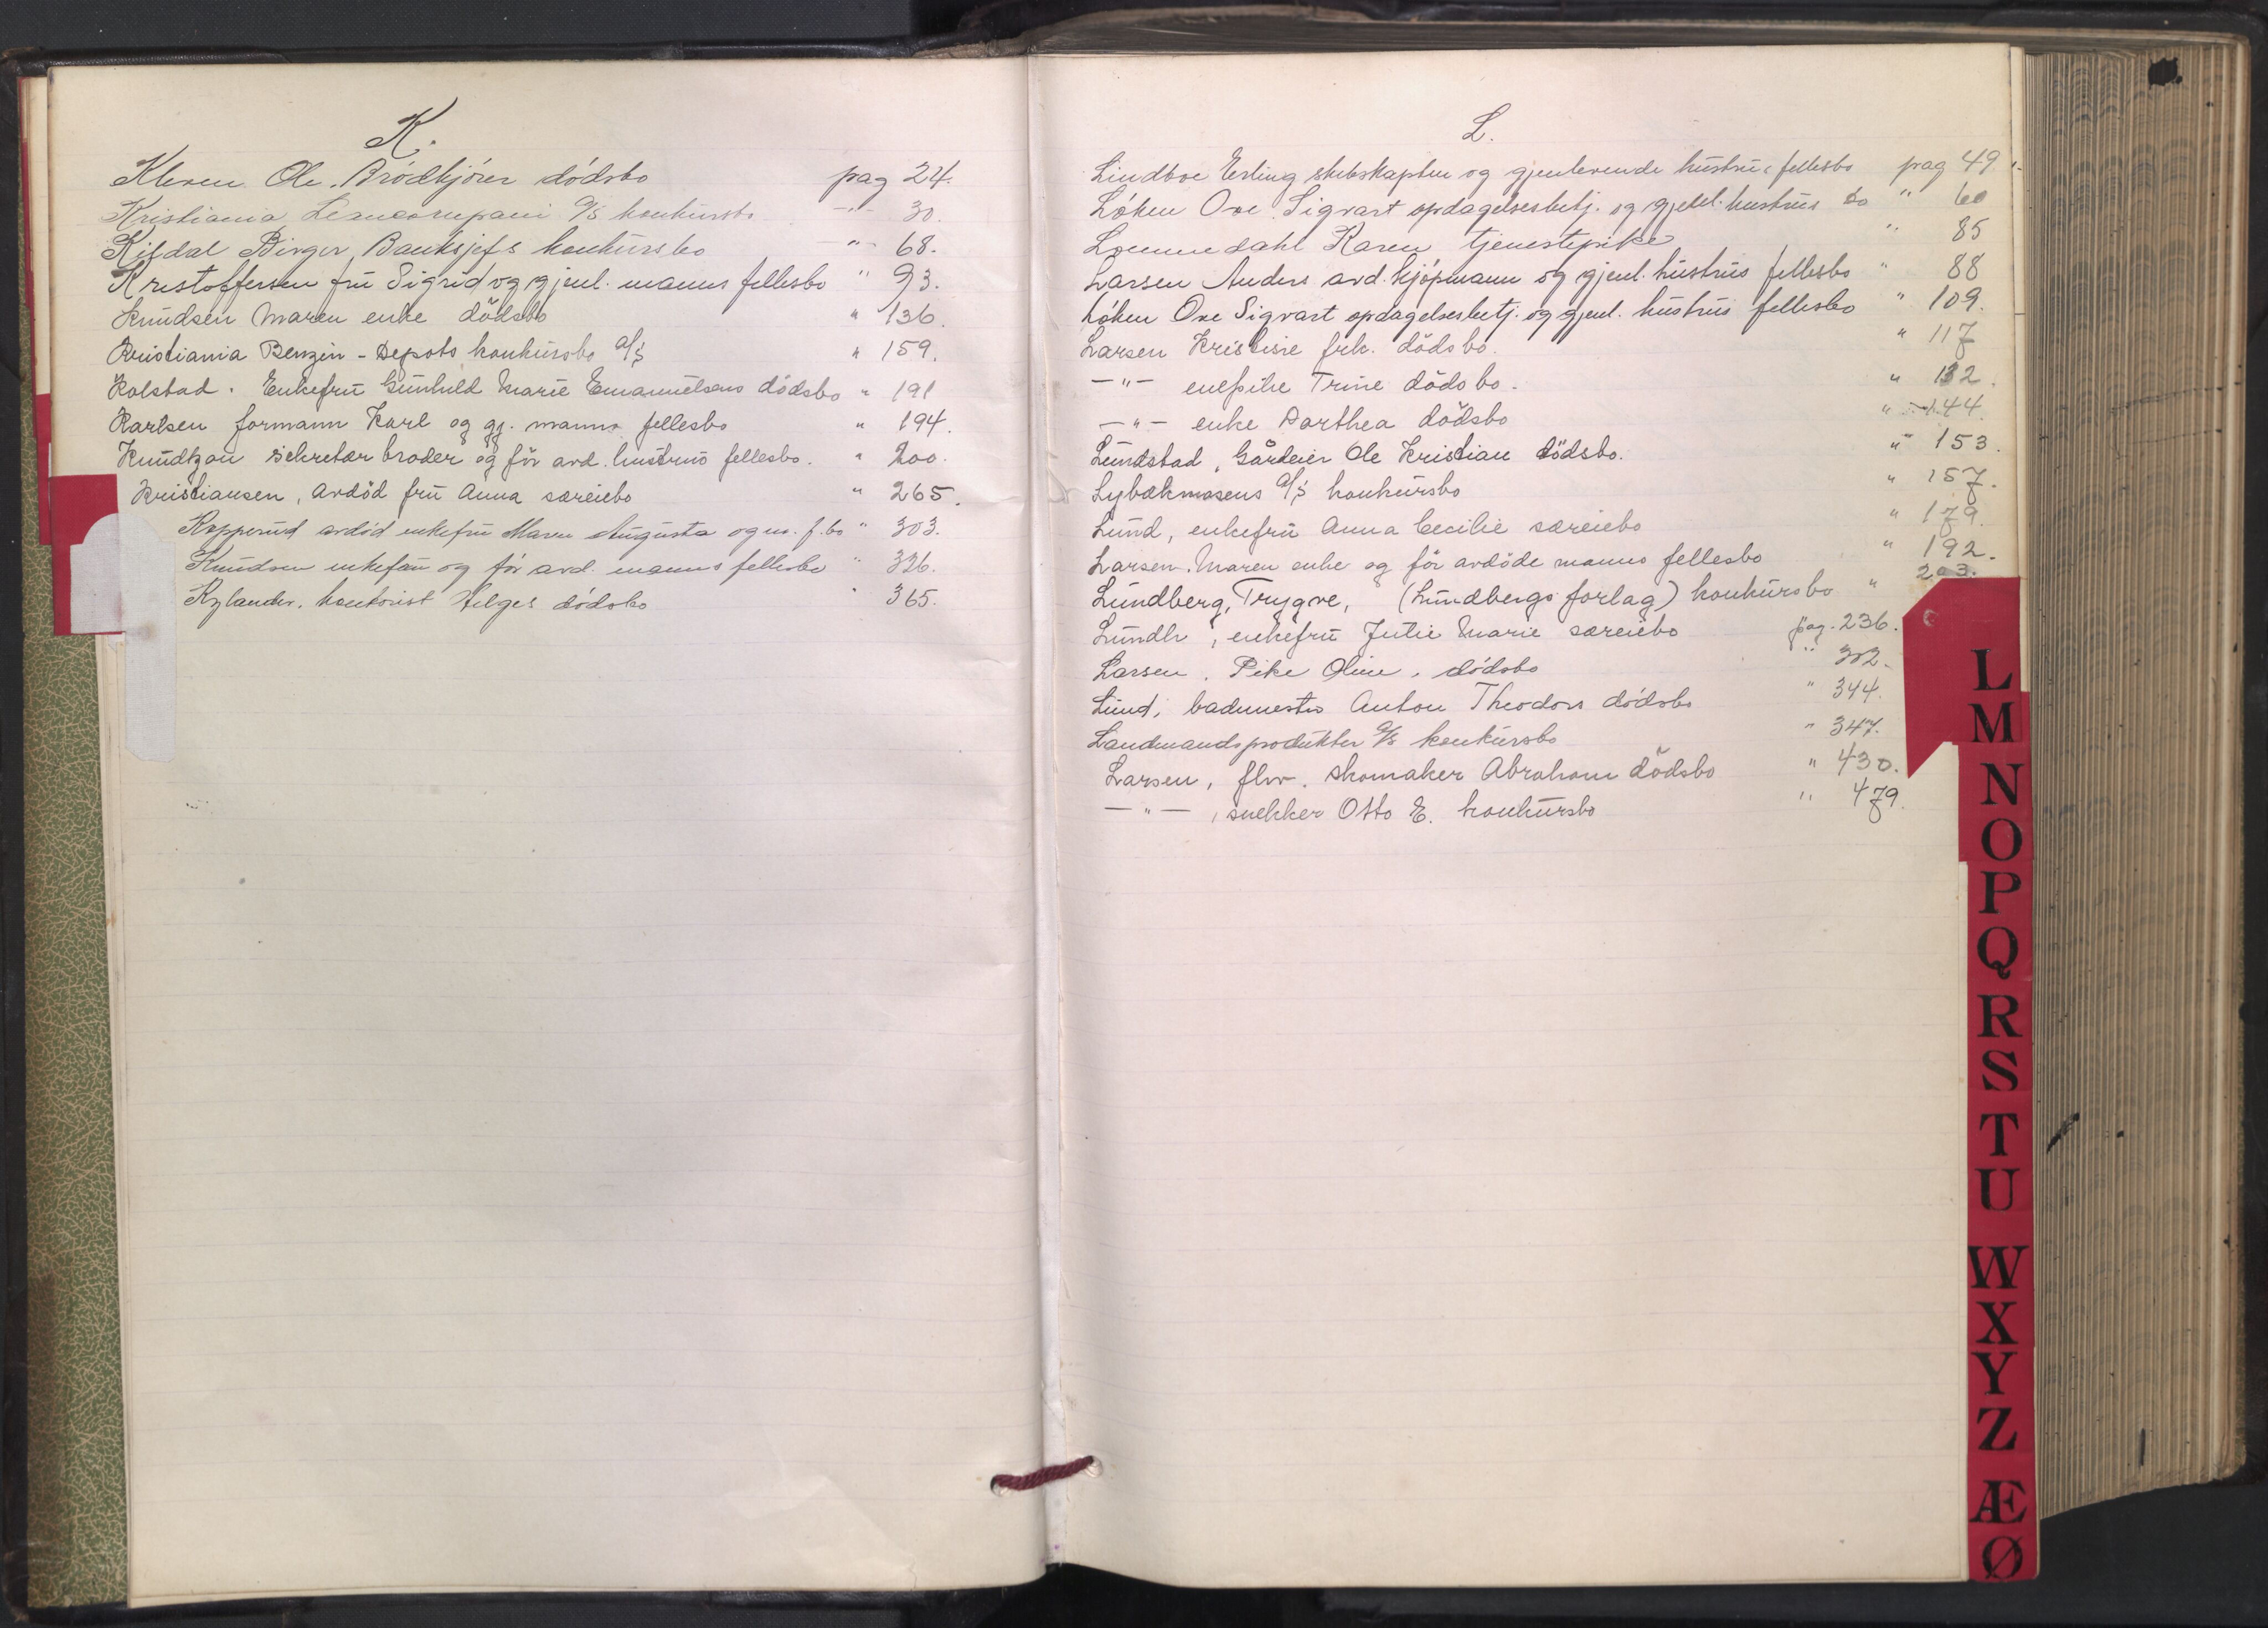 K.
Kleven Ole. Brödkjörer dödsbo pag 24.
Kristiania Leancompani A/S konkursbo -"- 30.
Kildal Birger Banksjefs konkursbo "- 68.
Kristoffersen fru Sigrid og gjenl. manns fellesbo " 93.
Knudsen Maren enke dödsbo " 136.
Kristiania Benzin-Depots konkursbo A/S " 159.
Kolstad. Enkefru Gunhild Marie Emanuelsens dödsbo " 191
Karlsen formann Karl og gj. manns fellesbo " 194.
Knudtzon sekretær broder og för avd. hustrus fellesbo. " 200.
Kristiansen, avdöd fru Anna særeiebo " 265.
Kopperud avdöd enkefru Maren Augusta og m. f.bo " 303.
Knudsen enkefru og för avd. manns fellesbo " 326.
Kylander. kontorist Helges dödsbo " 365.
L.
Lindboe Erling skibskaptein og gjenlevende hustrus fellesbo pag 49.
Löken Ove Sigvart opdagelsesbetj. og gjenl. hustrus do " 60
Lommedahl Karen tjenestepike " 85
Larsen Anders avd. kjöpmann og gjenl. hustrus fellesbo " 88
Löken Ove Sigvart opdagelsesbetj. og gjenl. hustrus fellesbo " 109.
Larsen Kristine frk. dödsbo. " 117
-"- enepike Trine dödsbo. " 132.
-"- enke Dorthea dödsbo " 144.
Lundstad, Gårdeier Ole Kristian dödsbo. " 153.
Lybækmosens A/S konkursbo " 157.
Lund, enkefru Anna Cecilie særeiebo " 179.
Larsen. Maren enke og för avdöde manns fellesbo " 192.
Lundberg, Trygve, (Lundbergs forlag) konkursbo " 203.
Lundh, enkefru Julie Marie særeiebo pag. 236.
Larsen. Pike Oline. dödsbo " 302.
Lund, bademester Anton Theodors dödsbo " 344.
Landmandsprodukter A/S konkursbo " 347.
Larsen, flw. skomaker Abraham dödsbo " 430.
-"-, snekker Otto E. konkursbo " 479.
L
M
N
O
P
Q
R
S
T
U
W
X
Y
Z
Æ
Ø